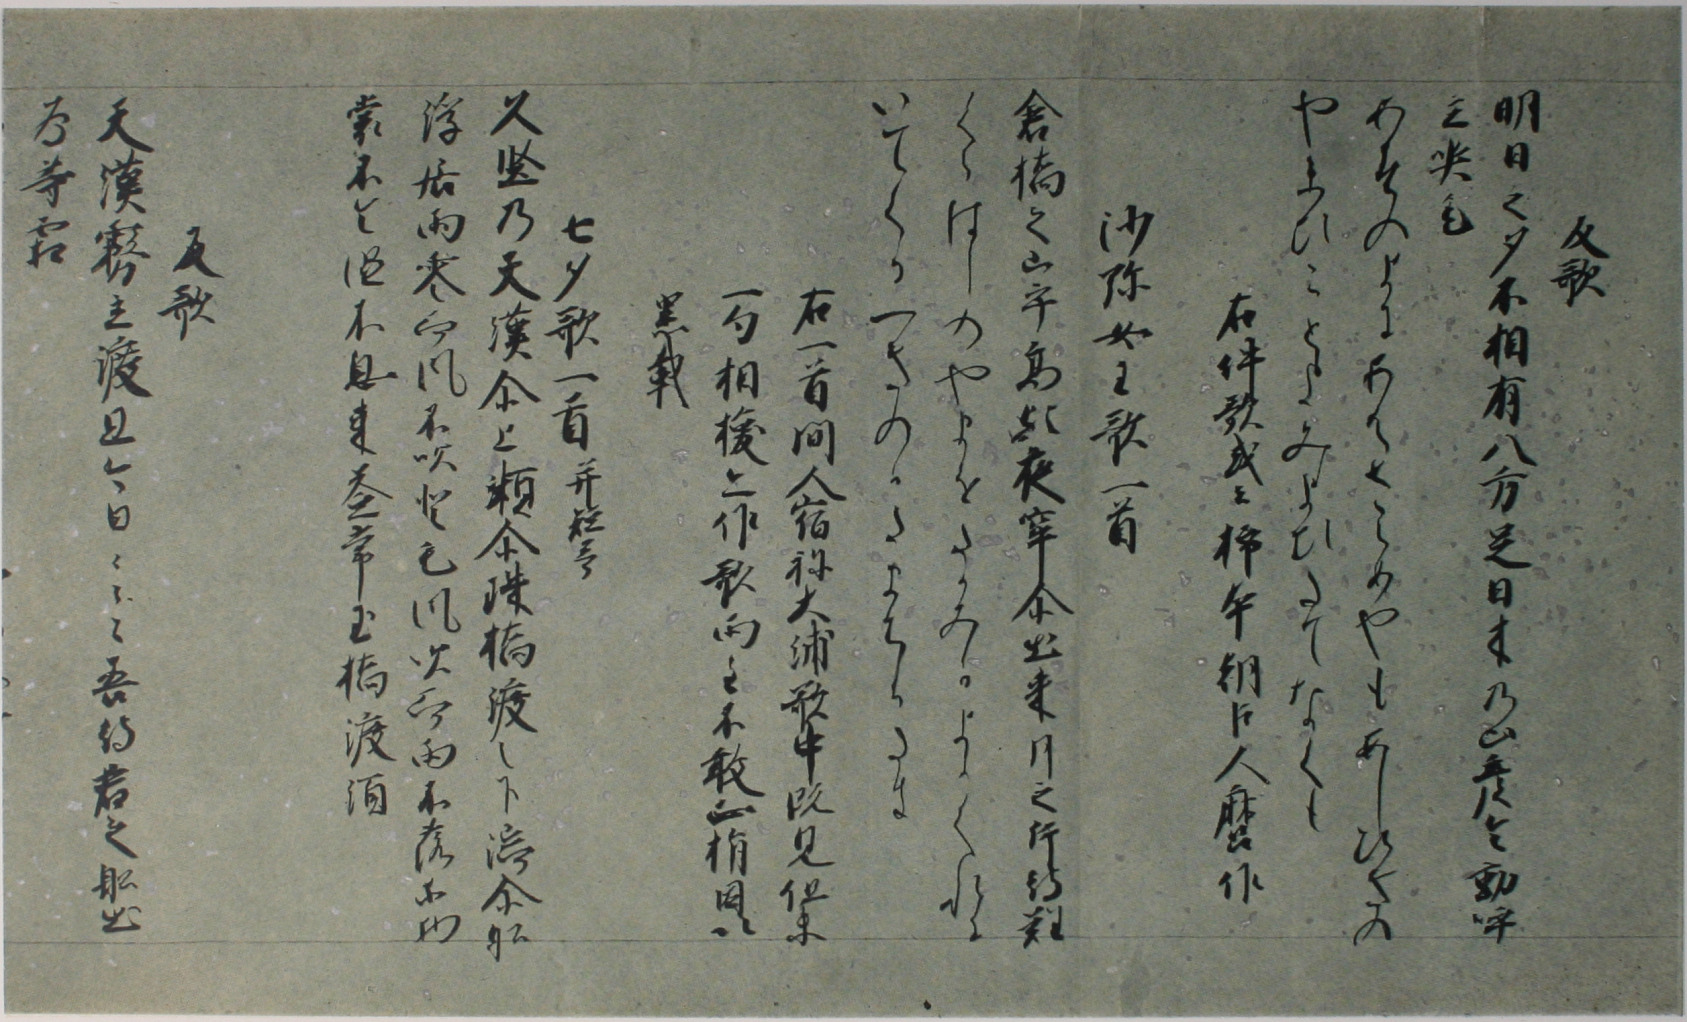 反歌
明日之夕不相有八方足日木乃山彦令動呼
立哭毛
あすのよにあはさらめやもあしひきの
やまひことよみよひたてなくも
右件歌或云柿本朝臣人麿作
沙弥女王歌一首
倉橋之山乎高歟夜牢尓出来月之片待難
くらはしのやまをたかみかよかくれに
いてくるつきのかたまちかたき
右一首間人宿祢大浦歌中既見但末
一句相換亦作歌両主不敢正指因以
累載
七夕歌一首 并短哥
久堅乃天漢尓上瀬尓珠橋渡之下湍尓船
浮居雨零而風不吹登毛風吹而雨不落等物
裳不令湿不息来益常玉橋渡須
反歌
天漢霧立渡且今日々々々吾待君之船出
為等霜